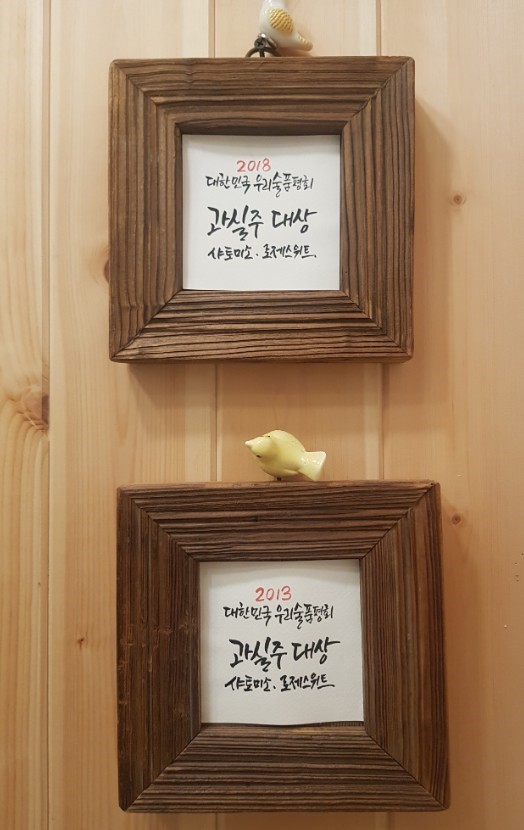 2018
대한민국 우리술품평회
과실주 대상
샤토미소. 로제스위트.
2013
대한민국 우리술품평회
과실주 대상
샤토미소. 로제스위트